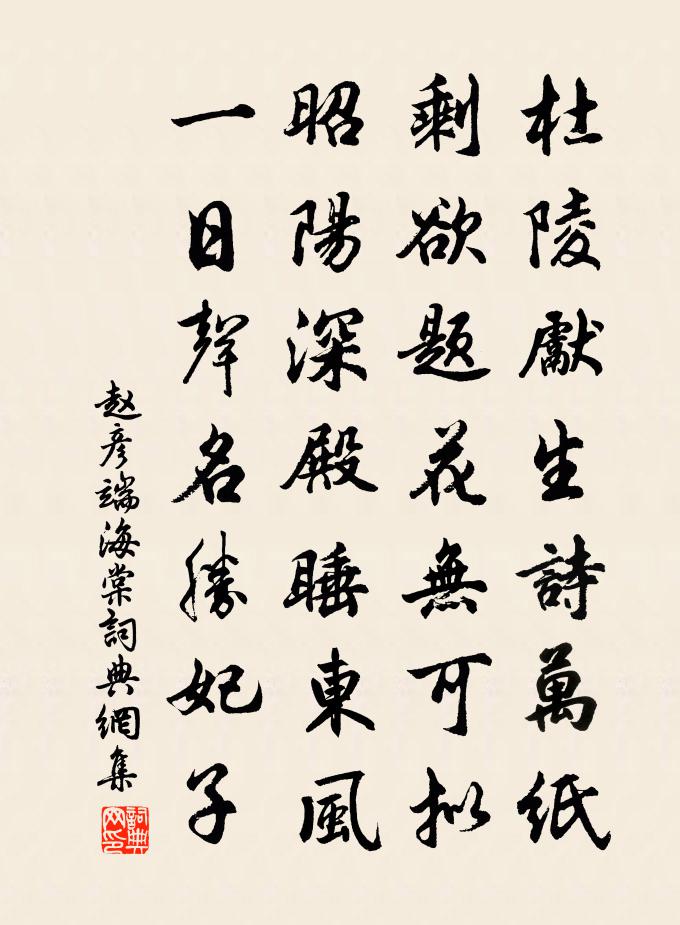 杜陵獻生詩萬紙
剩欲題花無可拟
昭陽深殿睡東風
一日聲名勝妃子
赵彦端海棠詞典網集
詞典网印